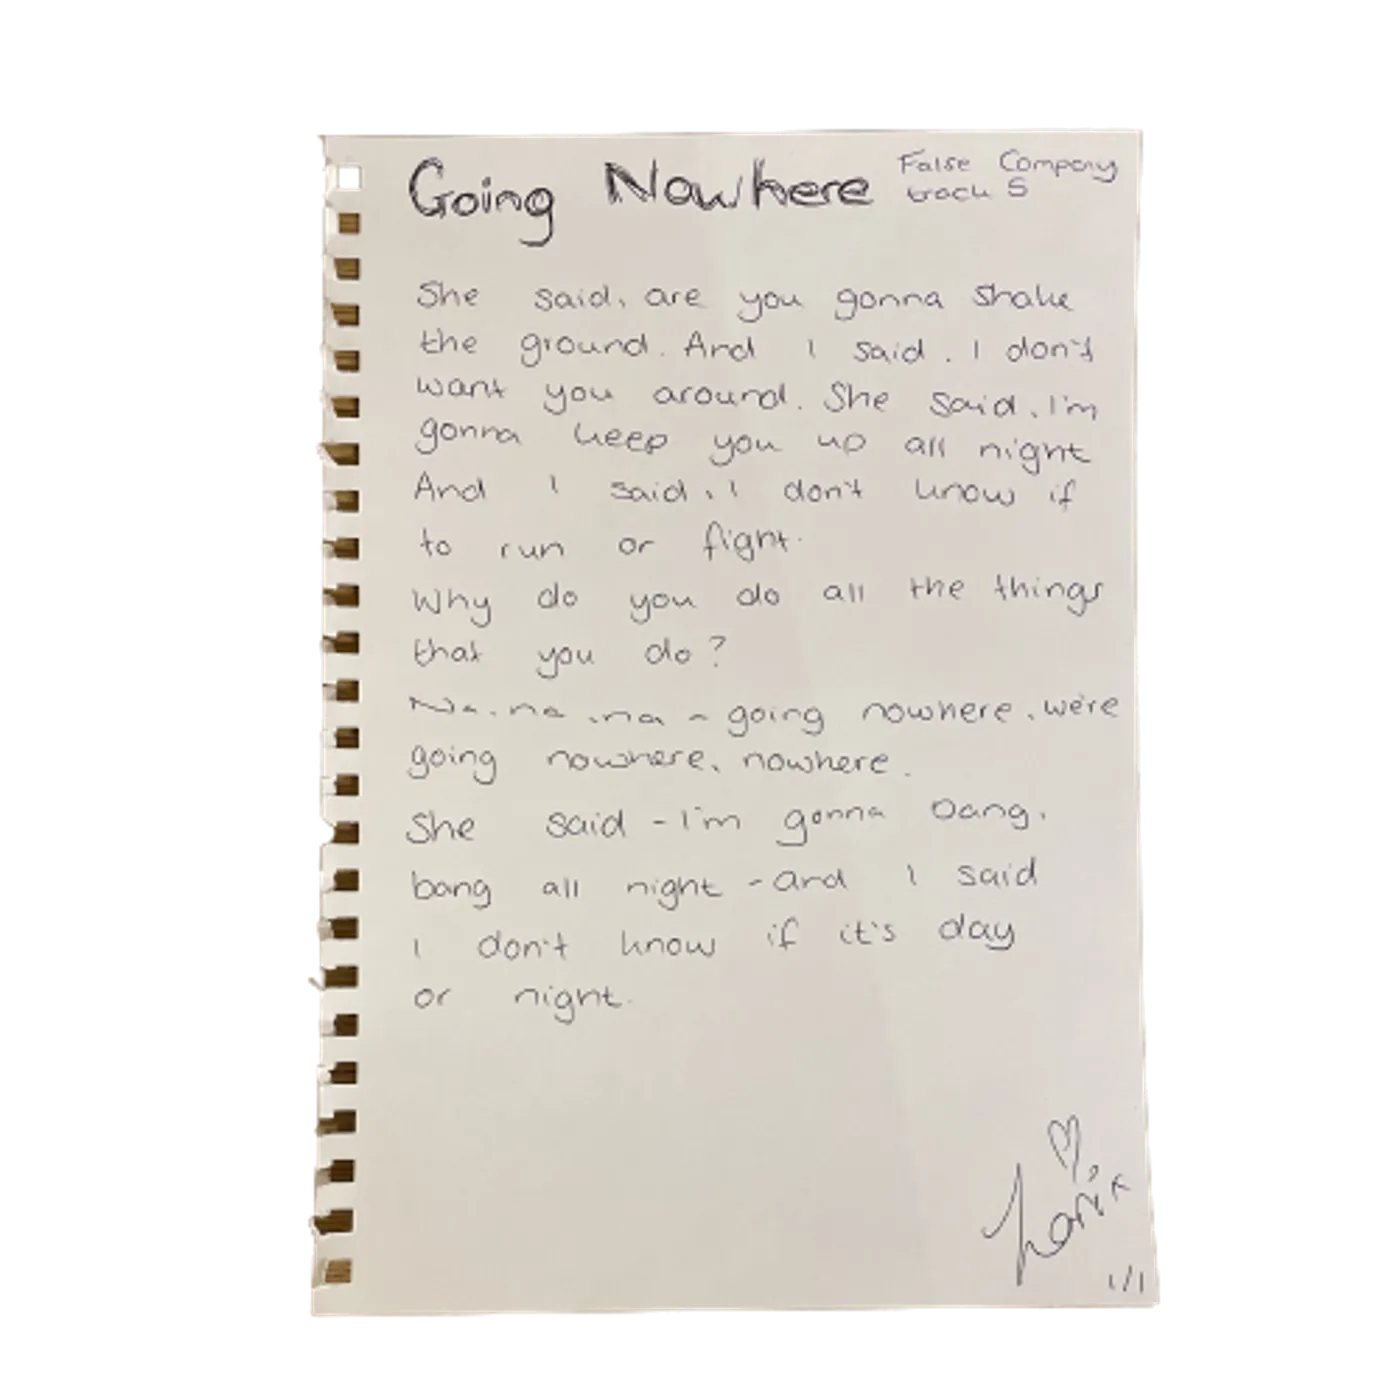 Going Nowhere
False Company
track 5
She said, are you gonna shake
the ground. And I said. I don't
want you around. She said, I'm
gonna keep you up all night
And I said, I don't know if
to run or fight.
Why do you do all the things
that you do?
Na, na, na - going nowhere, we're
going nowhere, nowhere.
She said - I'm gonna bang,
bang all night - and I said
I don't know if it's day
or night.
1/1